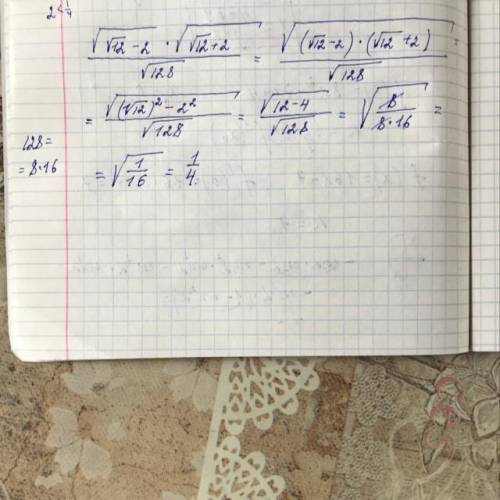 √(√12 - 2) · √(√12 + 2) / √128 = √((√12 - 2) · (√12 + 2)) / √128 =
= √((√12)² - 2²) / √128 = √(12 - 4) / √128 = √(8 / (8 · 16)) =
128 =
= 8 · 16
= √(1/16) = 1/4